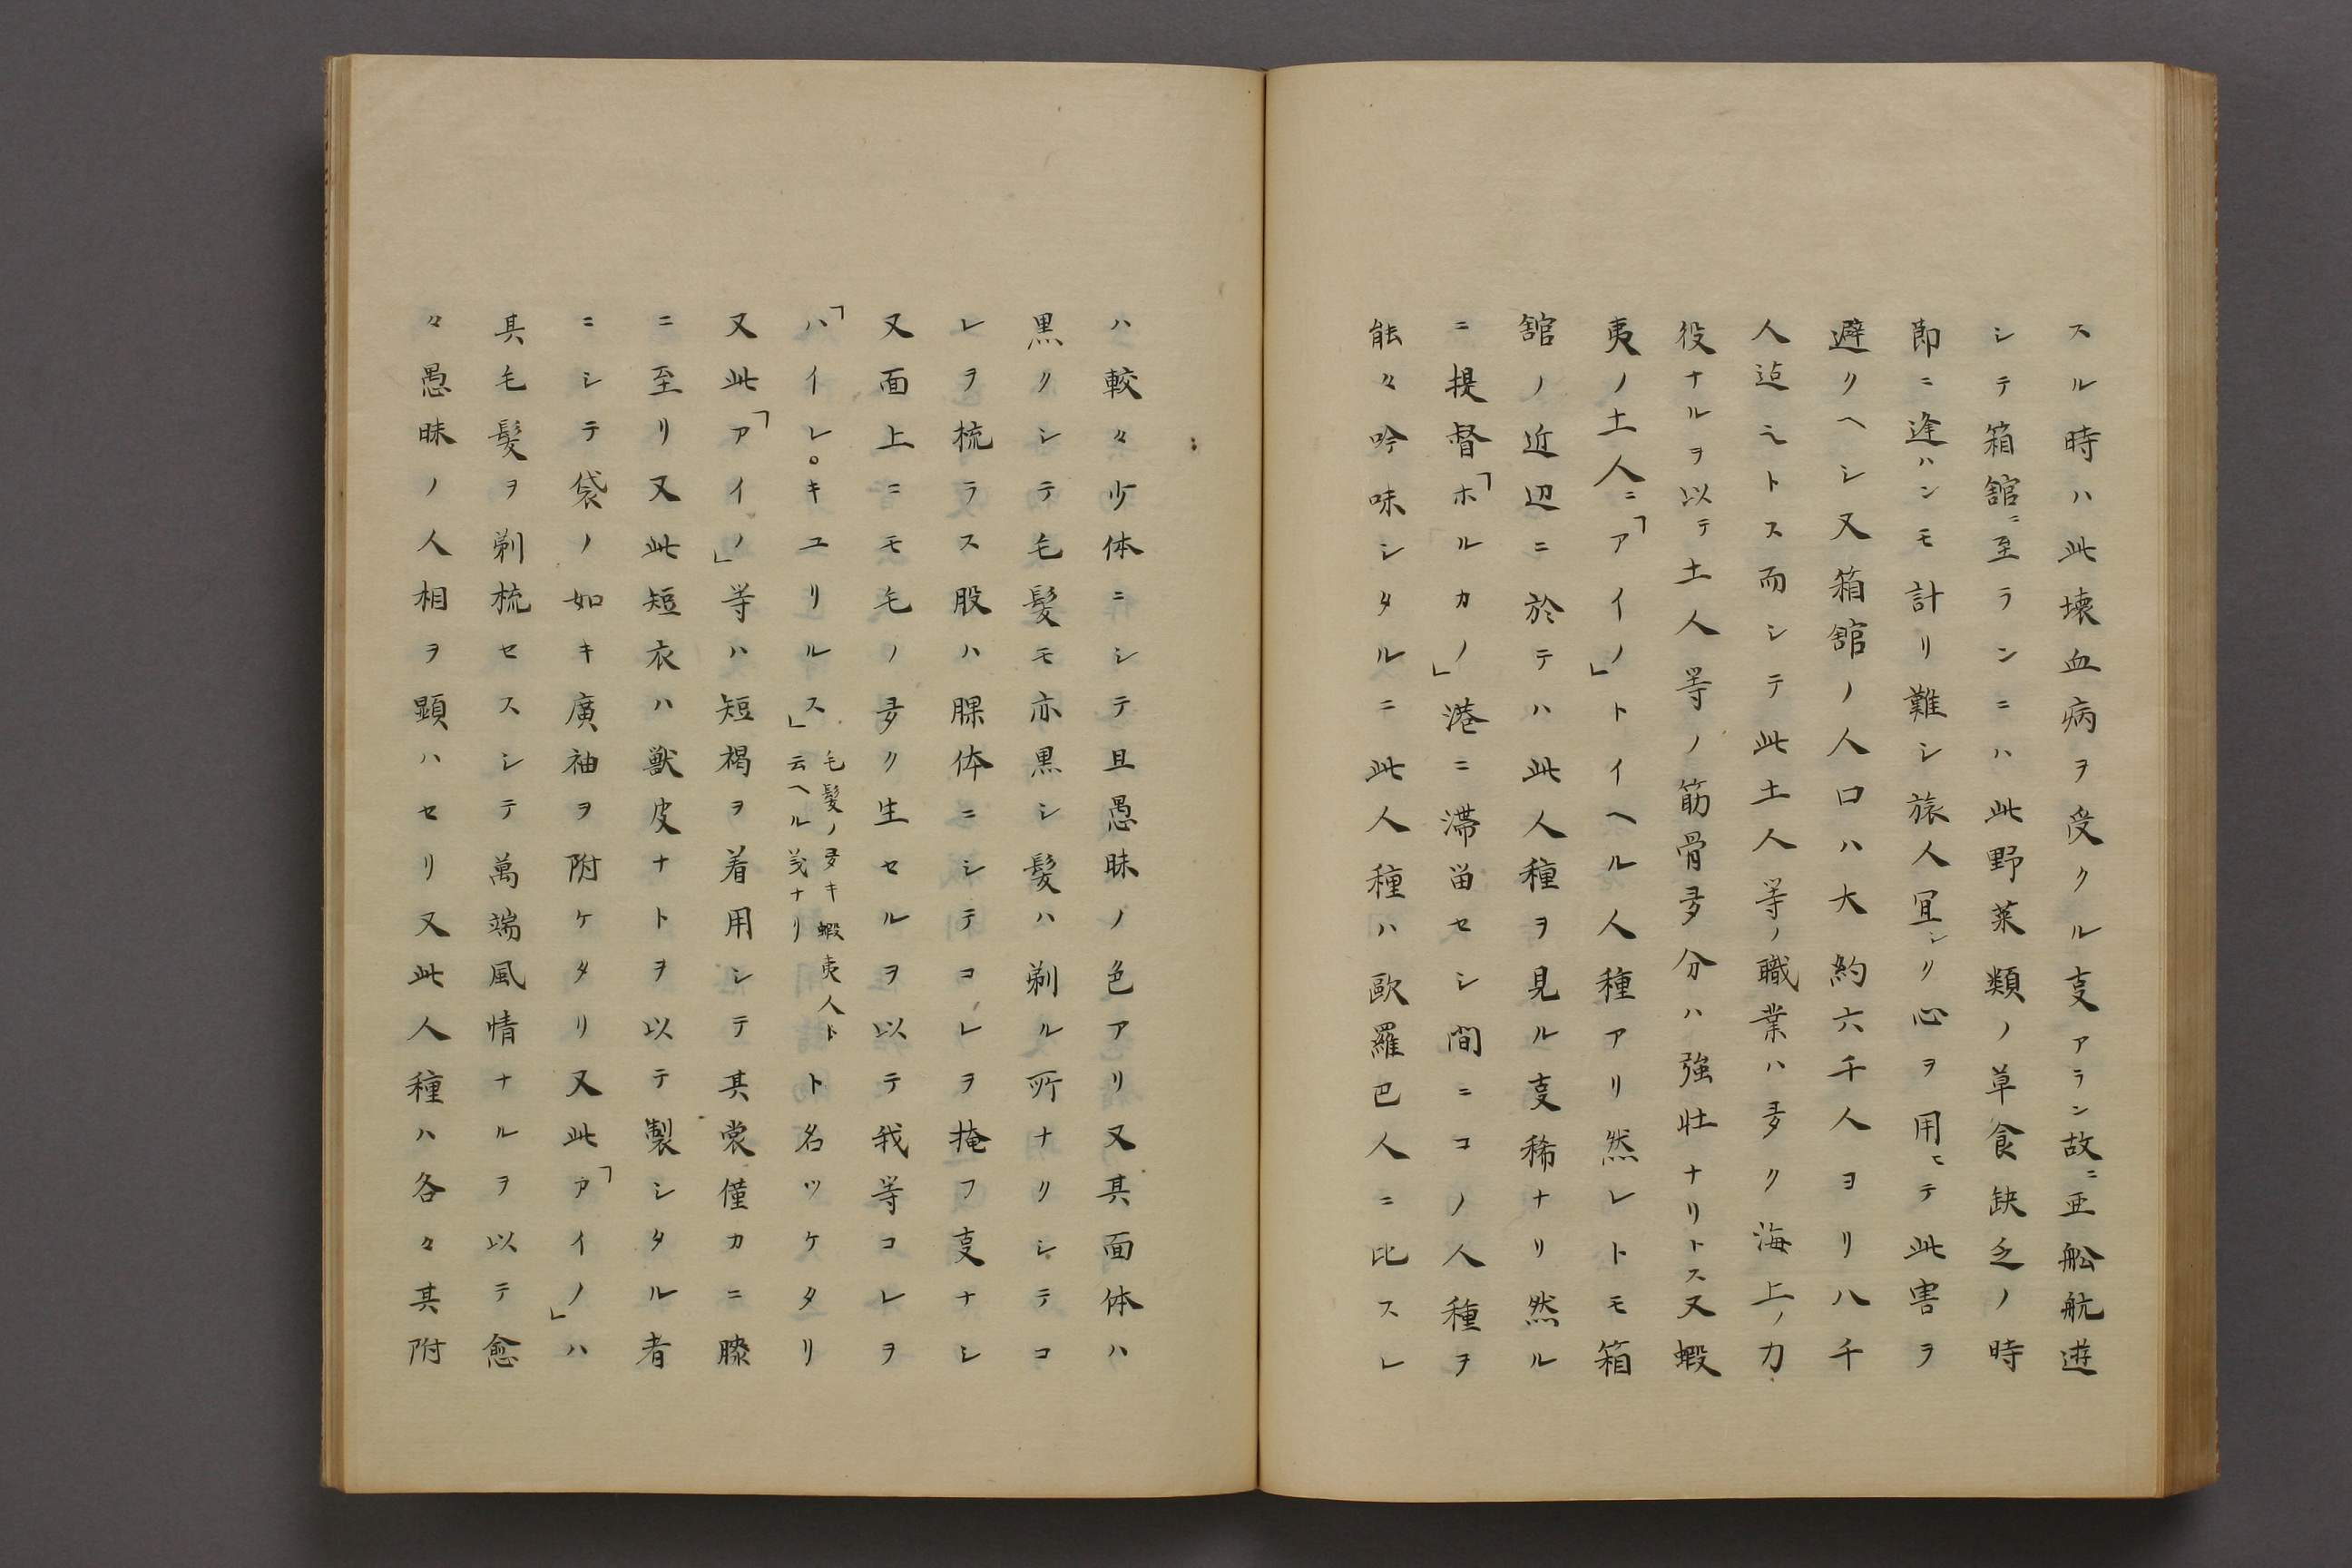 スル時ハ此壊血病ヲ受クル叓アラン故ニ亜舩航遊
シテ箱舘ニ至ランニハ此野菜類ノ草食缺乏ノ時
即ニ逢ハンモ計リ難シ旅人冝シリ心ヲ用ヒテ此害ヲ
避クヘシ又箱舘ノ人口ハ大約六千人ヨリ八千
人迠トス而シテ此土人等ノ職業ハ多ク海上ノ力
役ナルヲ以テ土人等ノ筋骨多分ハ強壮ナリトス又蝦
夷ノ土人ニ「アイノ」トイヘル人種アリ然レトモ箱
舘ノ近辺ニ於テハ此人種ヲ見ル叓稀ナリ然ル
ニ提督「ホルカノ」港ニ滞畄セシ間ニコノ人種ヲ
能々吟味シタルニ此人種ハ歐羅巴人ニ比スレ
ハ較々少体ニシテ且愚昧ノ色アリ又其面体ハ
黒クシテ毛髪モ亦黒シ髪ハ剃ル所ナクシテコ
レヲ梳ラス股ハ腂体ニシテコレヲ掩フ叓ナシ
又面上ニモ毛ノ多ク生セルヲ以テ我等コレヲ
「ハイレ。キユリルス」毛髪ノ多キ蝦夷人ト云ヘル義ナリト名ツケタリ
又此「アイノ」等ハ短褐ヲ着用シテ其裳僅カニ膝
ニ至リ又此短衣ハ獣皮ナトヲ以テ製シタル者
ニシテ袋ノ如キ廣袖ヲ附ケタリ又此「アイノ」ハ
其毛髪ヲ剃梳セスシテ萬端風情ナルヲ以テ愈
々愚昧ノ人相ヲ顕ハセリ又此人種ハ各々其附